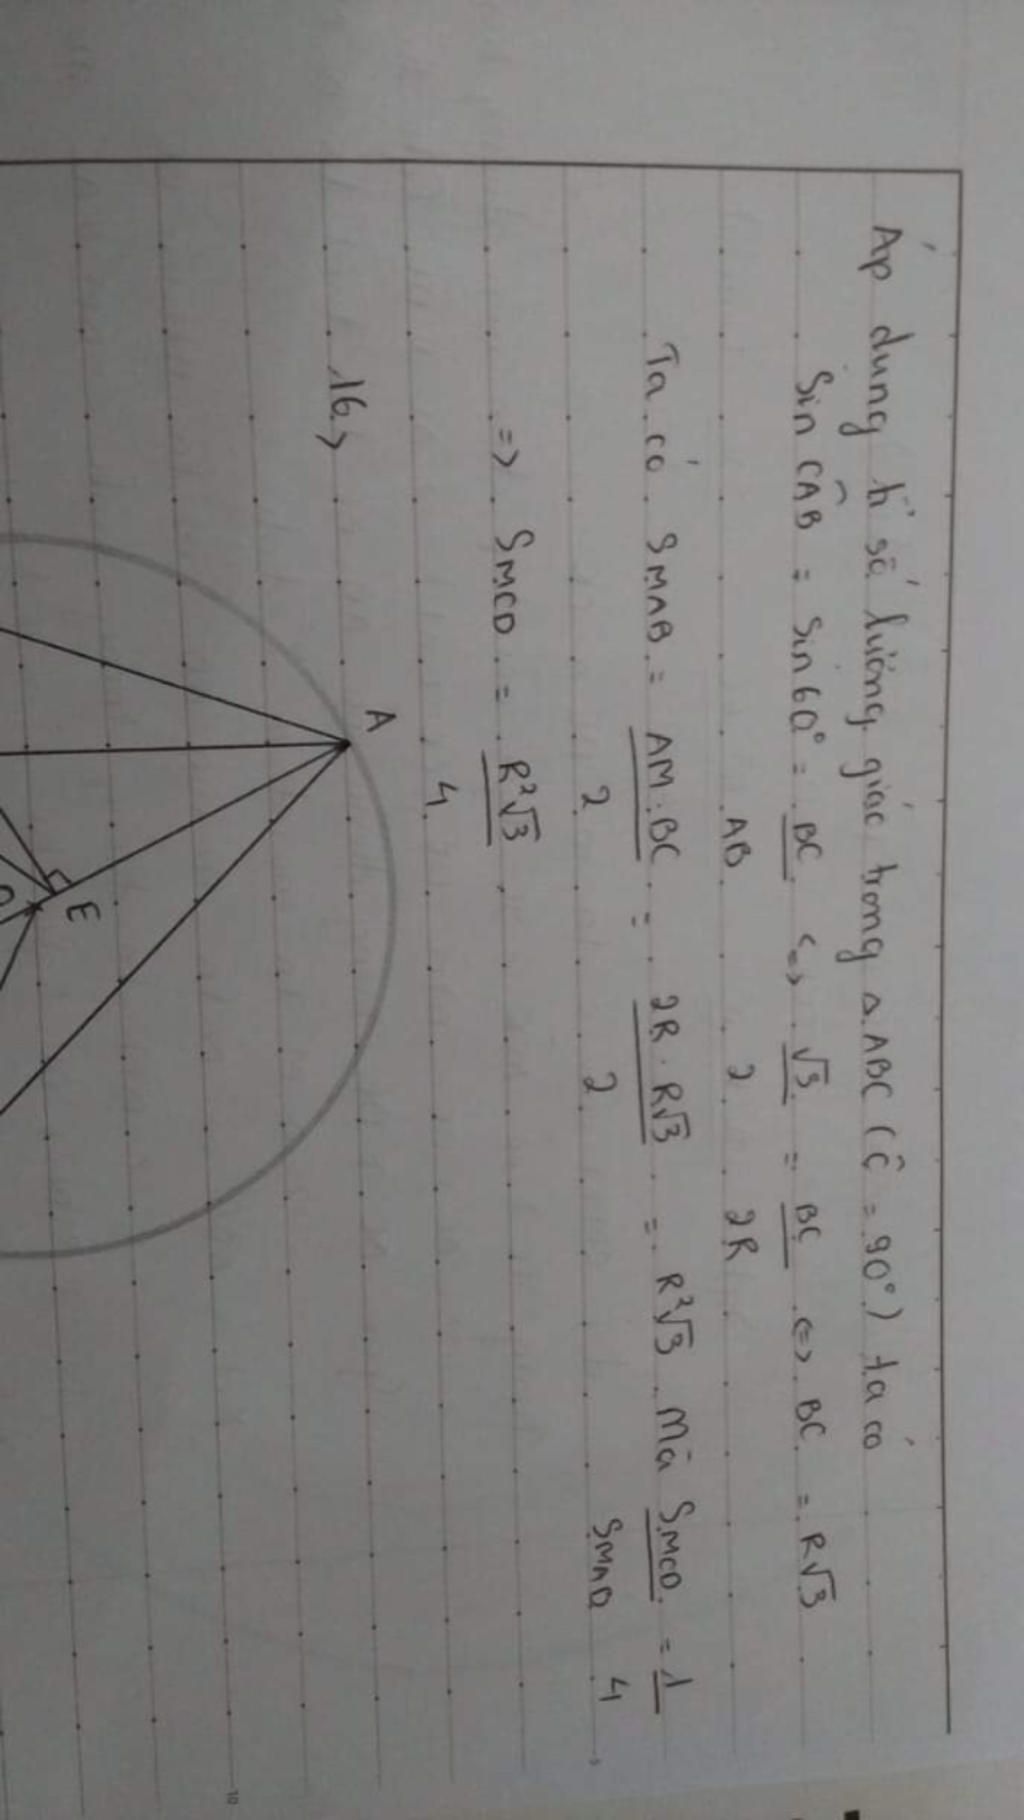 Áp dụng tỉ số lượng giác trong Δ ABC (Ĉ = 90°) ta có
Sin CÂB = Sin 60° = BC/AB <=> √3/2 = BC/2R <=> BC = R√3
Ta có S MAB = AM.BC/2 = 2R.R√3/2 = R²√3 . Mà S MCD/S MAB = 1/4
=> S MCD = R²√3/4
16>
A
E